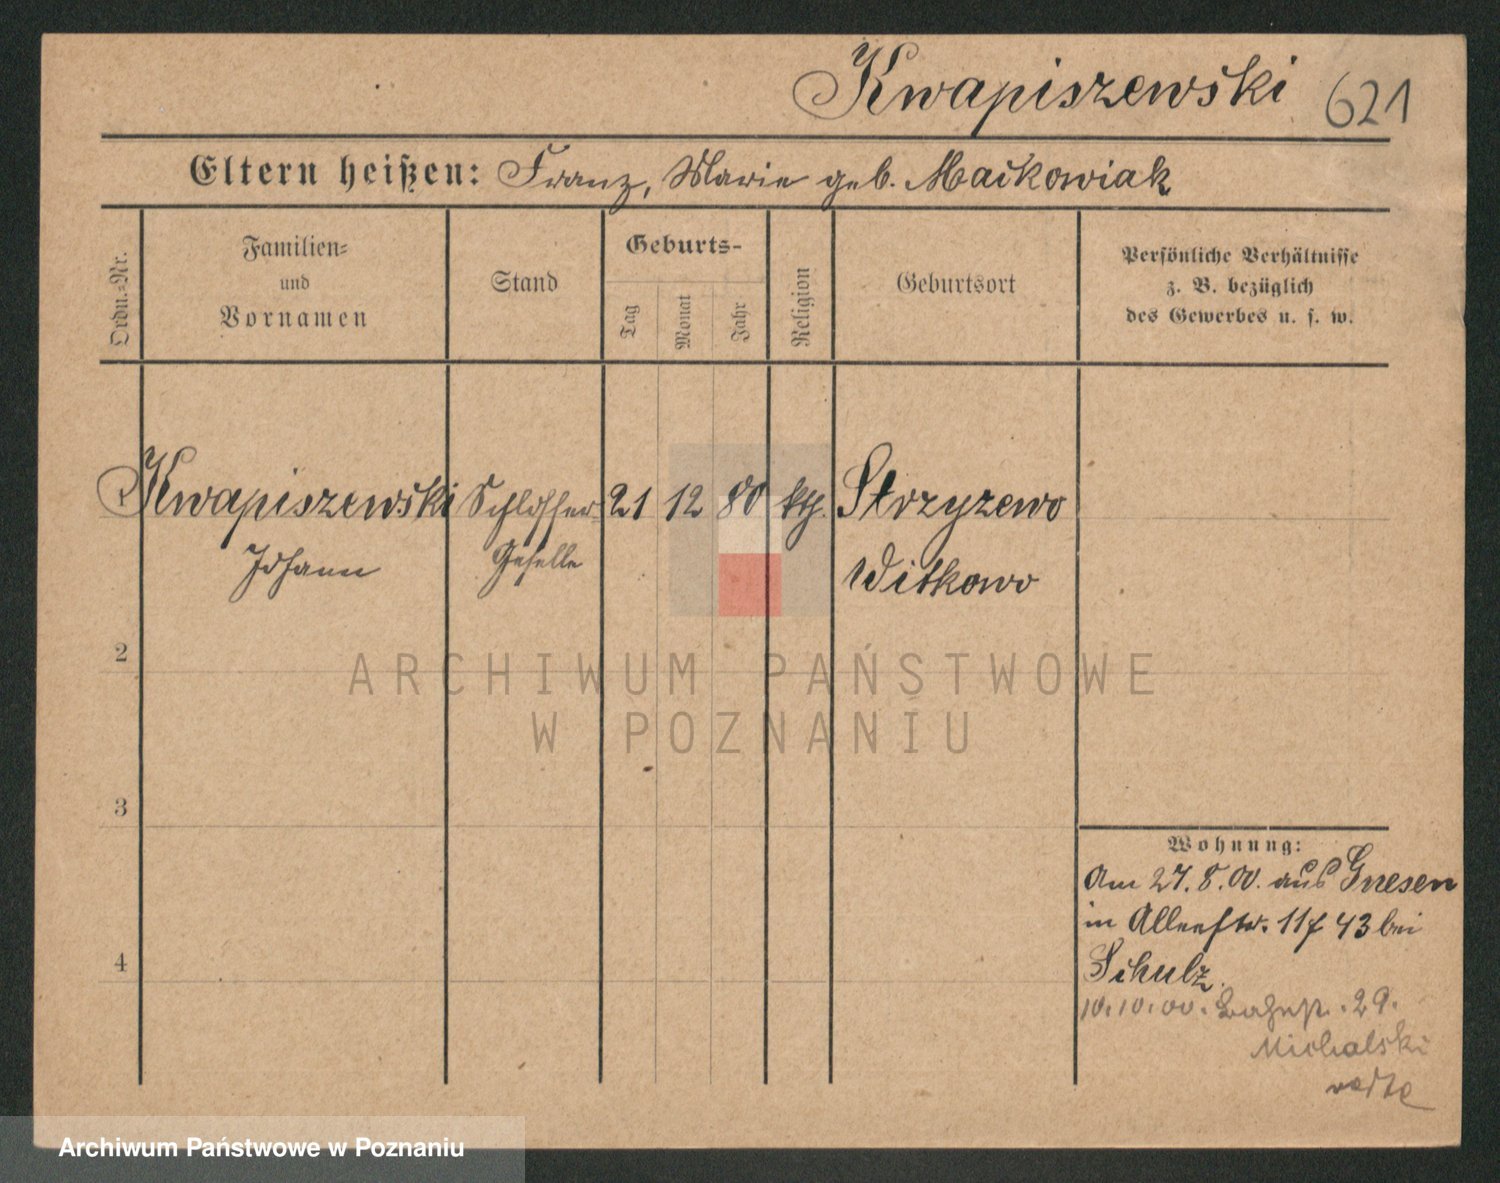 Kwapiszewski 621
Eltern heißen: Franz, Marie geb. Maćkowiak
Ordn.-Nr.
Familien-
und
Vornamen
Stand
Geburts-
Tag
Monat
Jahr
Religion
Geburtsort
Persönliche Verhältnisse
z. B. bezüglich
des Gewerbes u. s. w.
1 Kwapiszewski Schlosser- 21 12 80 kth. Strzyzewo
Johann Geselle Witkowo
2
ARCHIWUM PAŃSTWOWE
W POZNANIU
3
Wohnung:
Am 27.8.00. aus Gnesen
in Alleestr. 43 bei
4
Schulz.
10.10.00. Bahnst. 29.
Michalski
Archiwum Państwowe w Poznaniu